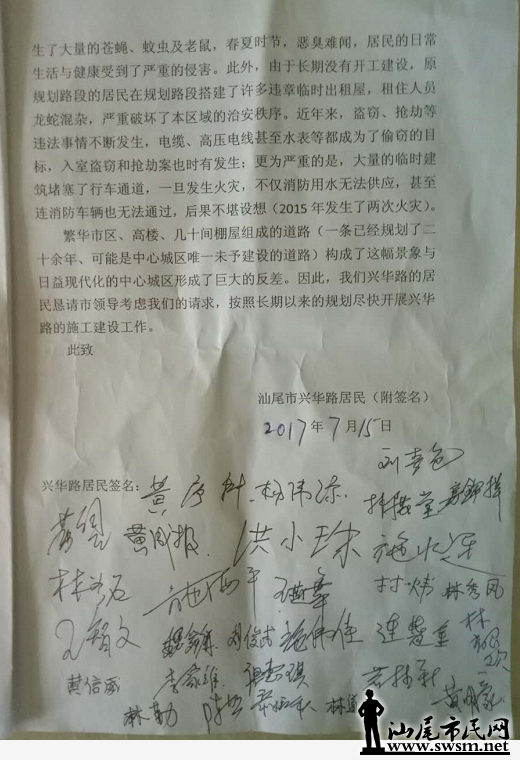 生了大量的苍蝇、蚊虫及老鼠，春夏时节，恶臭难闻，居民的日常
生活与健康受到了严重的侵害。此外，由于长期没有开工建设，原
规划路段的居民在规划路段搭建了许多违章临时出租屋，租住人员
龙蛇混杂，严重破坏了本区域的治安秩序。近年来，盗窃、抢劫等
违法事情不断发生，电缆、高压电线甚至水表等都成为了偷窃的目
标，入室盗窃和抢劫案也时有发生；更为严重的是，大量的临时建
筑堵塞了行车通道，一旦发生火灾，不仅消防用水无法供应，甚至
连消防车辆也无法通过，后果不堪设想（2015 年发生了两次火灾）。
繁华市区、高楼、几十间棚屋组成的道路（一条已经规划了二
十余年、可能是中心城区唯一未予建设的道路）构成了这幅景象与
日益现代化的中心城区形成了巨大的反差。因此，我们兴华路的居
民恳请市领导考虑我们的请求，按照长期以来的规划尽快开展兴华
路的施工建设工作。
此致
汕尾市兴华路居民（附签名）
2017 年 7 月 15 日
兴华路居民签名：
洪小珠
林秀凤
黄信
林勤
汕尾市民网
www.swsm.net